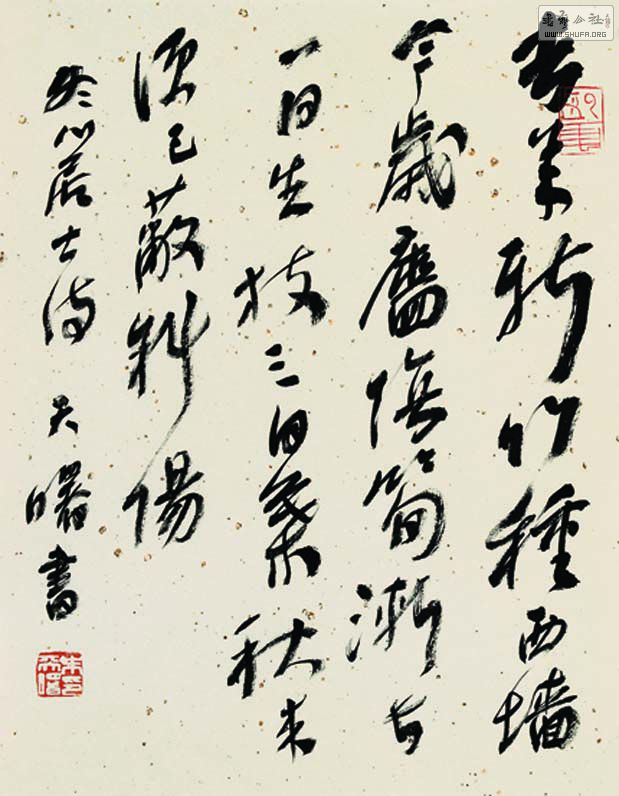 去年新竹種西墻
今歲舊陰筍漸長
一日生枝三日葉秋來
須已蔽斜陽
冬心居士詩 天曙書
公社
WWW.SHUFA.ORG